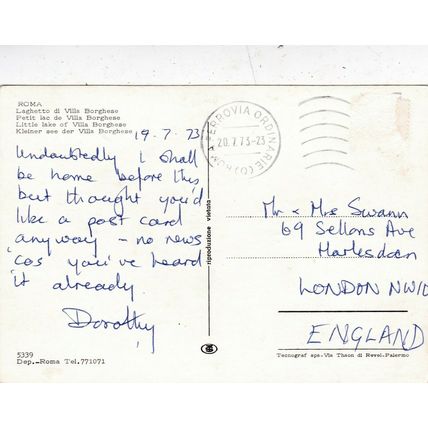 ROMA
Laghetto di Villa Borghese
Petit lac de Villa Borghese
Little lake of Villa Borghese
Kleiner see der Villa Borghese
19-7-73
Undoubtedly I shall
be home before this
but thought you'd
like a post card
anyway - no news
'cos you've heard
it already.
Dorothy
5339
Dep.-Roma Tel.771071
riproduzione vietata
FERROVIA ORDINARIE
20.7.73-23
ROMA
Mr & Mrs Swann
69 Sellons Ave
Harlesden
LONDON NW10
ENGLAND
Tecnograf spa-Via Thaon di Revel-Palermo